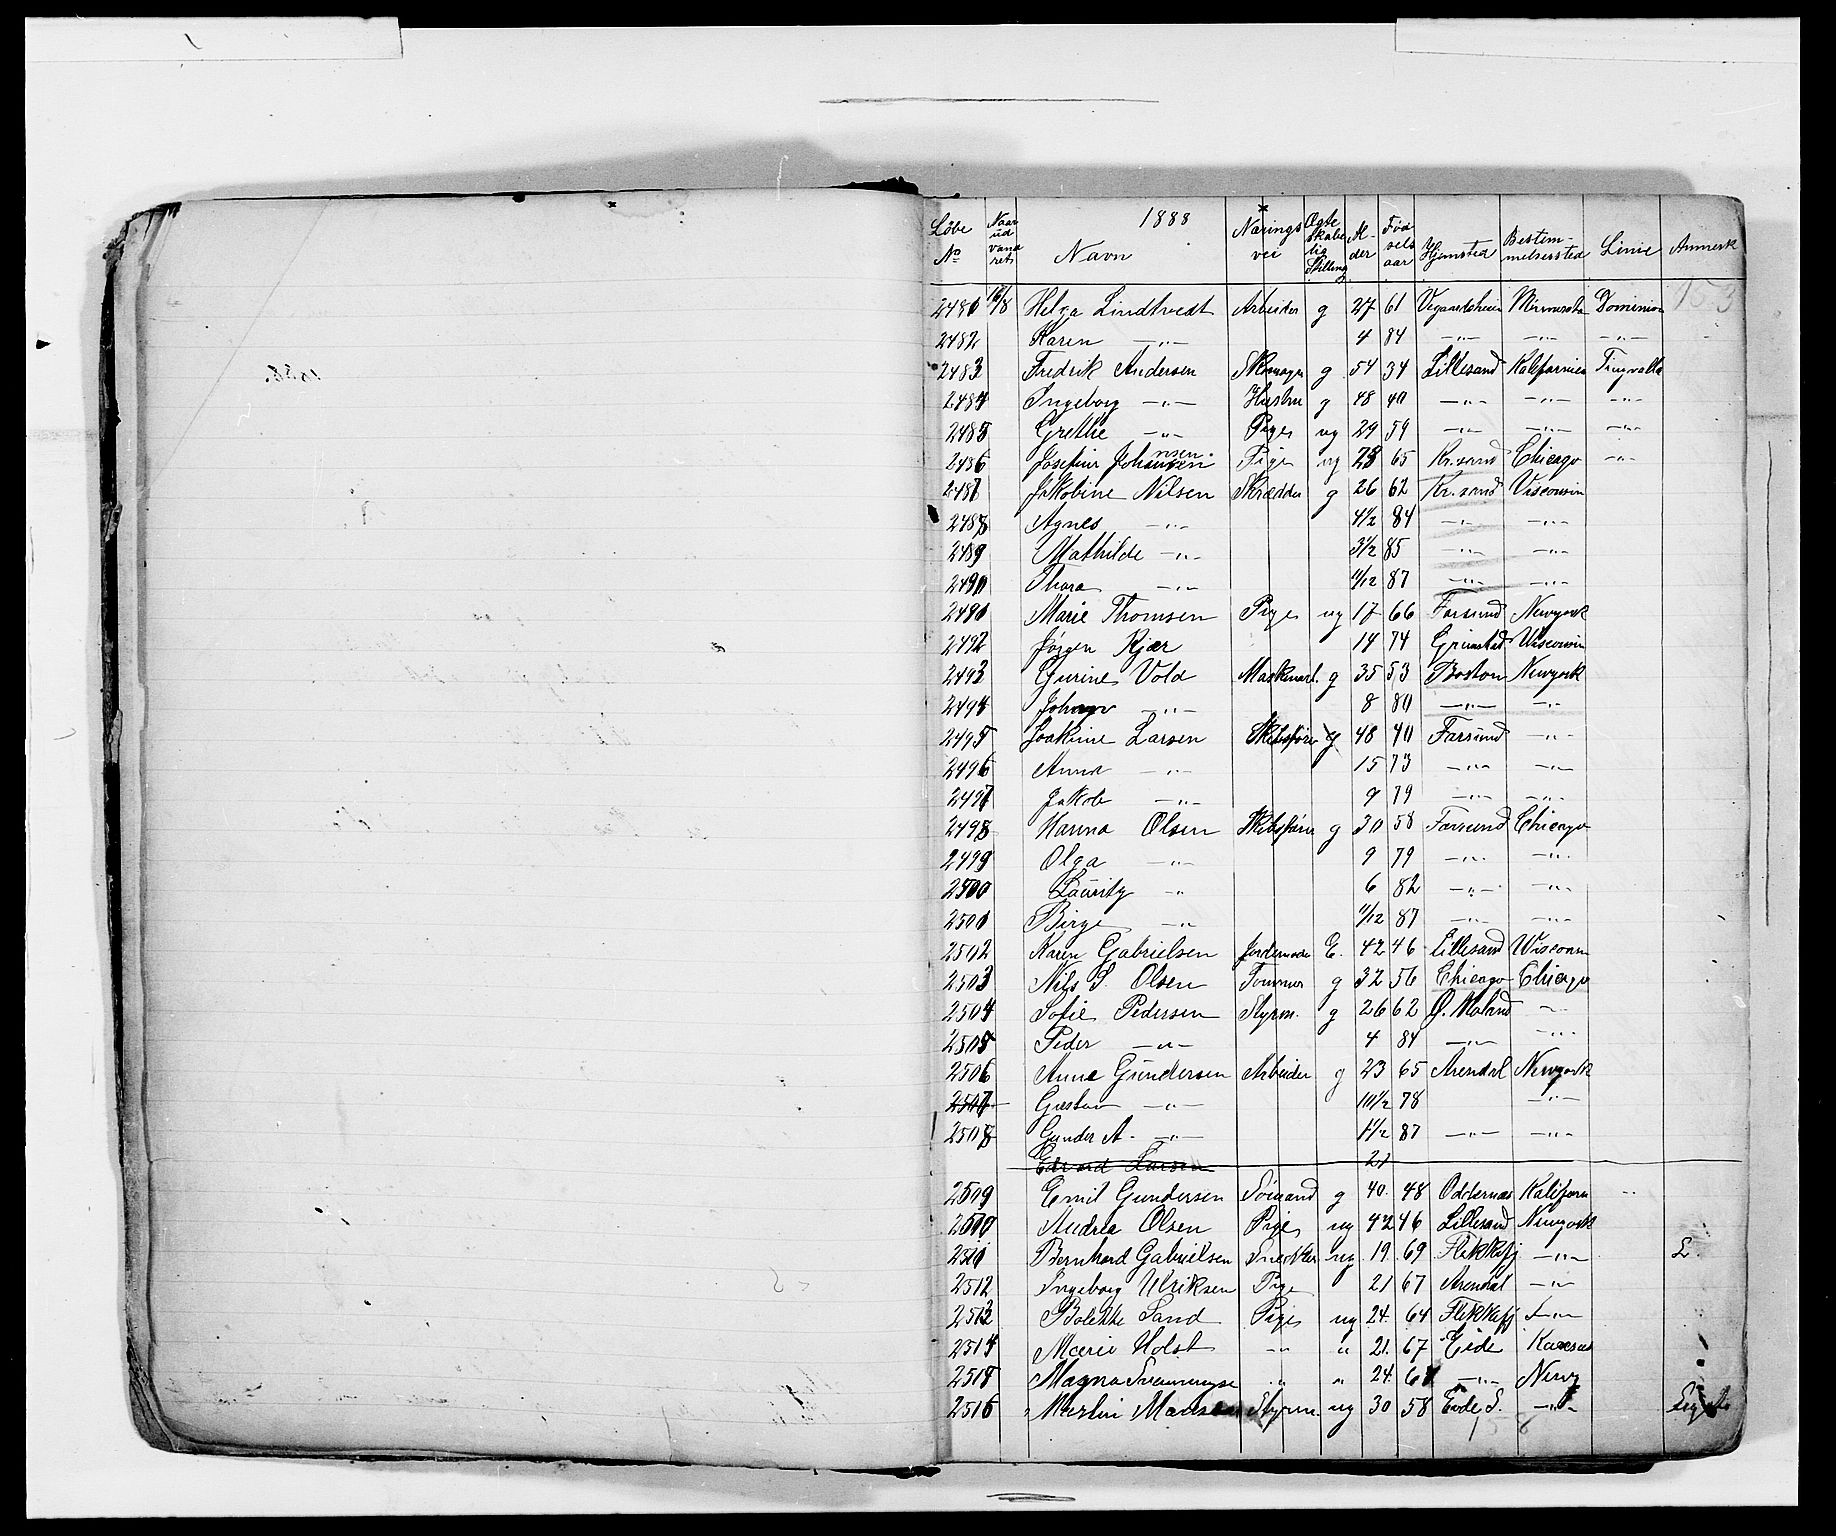 1888
Løbe No Naar udvandret Navn Nærings vei Ægteskabelig Stilling Alder Fødselsaar Hjemsted Bestemmelsessted Linie Anmerk
153
2481 16/8 Helga Lindtvedt Arbeider g 27 61 Vegaardsheien Dominion
2482 Karen —"— 4 84 —"— —"— —"—
2483 Fredrik Andersen Skomager g 54 34 Lillesand Kalifornien Tingvalla
2484 Ingeborg —"— Hustru g 48 40 —"— —"— —"—
2485 Grethe —"— Pige ug 29 59 —"— —"— —"—
2486 Josefine Johannsen Pige ug 23 65 Kr.sand Chicago —"—
2487 Jakobine Nilsen Skrædder g 26 62 Kr.sand Visconsin
2488 Agnes —"— 4½ 84 —"— —"—
2489 Mathilde —"— 3½ 85 —"— —"—
2490 Thora —"— 11/12 87 —"— —"—
2491 Marie Thomsen Pige ug 17 66 Farsund Newyork
2492 Jørgen Kjær 14 74 Grimstad Wisconsin
2493 Gurine Vold g 35 53 Boston Newyork
2494 Johan —"— 8 80 —"— —"—
2495 Joakime Larsen Skibsfører g 48 40 Farsund —"—
2496 Anna —"— 15 73 —"— —"—
2497 Jakob —"— 9 79 —"— —"—
2498 Hanna Olsen Skibsfører g 30 58 Farsund Chicago
2499 Olga —"— 9 79 —"— —"—
2500 Lauritz —"— 6 82 —"— —"—
2501 Birge —"— 11/12 87 —"— —"—
2502 Karen Gabrielsen Jordemoder E. 42 46 Lillesand Wisconsin
2503 Nils S. Olsen Tømmer g 32 56 Chicago Chicago
2504 Sofie Pedersen Styrm. g 26 62 Ø. Moland —"—
2505 Peder —"— 4 84 —"— —"—
2506 Anne Gundersen Arbeider g 23 65 Arendal Newyork
2507 Gustav —"— 10½ 78 —"—
2508 Gunder A. —"— 1½ 87 —"— —"—
Edvard Larsen 21
2509 Emil Gundersen Sømand g 40 48 Oddernæs Kaliforn "
2510 Andrea Olsen Pige ug 42 46 Lillesand Newyork
2511 Bernhard Gabrielsen Snedker ug 19 69 Flekkefj —"— L.
2512 Ingeborg Ulriksen Pige 21 67 Arendal —"—
2513 Bolette Sand Pige ug 24 64 Flekkefj —"—
2514 Marie Holst —"— " 21 67 Eide Kansas
2515 Magna " " 24 —"— Newy
2516 Martin Styrm. ug 30 58 Eide S. —"—